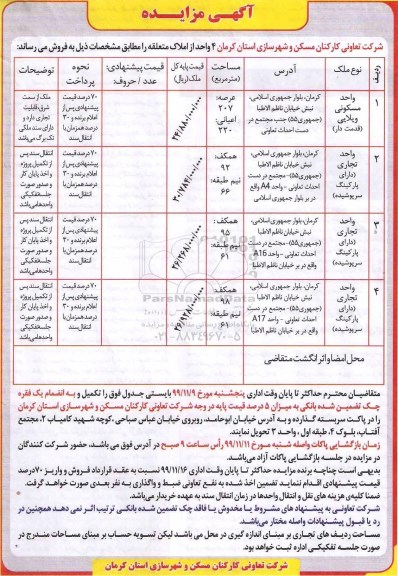 آگهی مزایده
شرکت تعاونی کارکنان مسکن و شهرسازی استان کرمان ۴ واحد از املاک متعلقه را مطابق مشخصات ذیل به فروش می رساند:
ردیف
نوع ملک
آدرس
مساحت (مترمربع)
قیمت پایه کل ملک (ریال)
قیمت پیشنهادی: عدد / حروف:
نحوه پرداخت
توضیحات
۱
واحد مسکونی ویلایی (قدمت دار)
کرمان، بلوار جمهوری اسلامی، نبش خیابان ناظم الاطبا (جمهوری۵۵) جنب مجتمع در دست احداث تعاونی
عرصه: ۲۰۷
اعیانی: ۲۲۰
۷۰ درصد قیمت پیشنهادی پس از اعلام برنده و ۳۰ درصد همزمان با انتقال سند
ملک از سمت شرق، قابلیت تجاری دارد و دارای سند ملکی تک برگ می‌باشد
۲
واحد تجاری (دارای پارکینگ سرپوشیده)
کرمان، بلوار جمهوری اسلامی، نبش خیابان ناظم الاطبا (جمهوری۵۵)- مجتمع در دست احداث تعاونی - واحد A4 واقع در بر بلوار جمهوری اسلامی
همکف: ۹۲
نیم طبقه: ۶۶
۷۰ درصد قیمت پیشنهادی پس از اعلام برنده و ۳۰ درصد همزمان با انتقال سند
انتقال سند پس از تکمیل پروژه و اخذ پایان کار و صدور صورت جلسه تفکیکی واحدها می‌باشد
۳
واحد تجاری (دارای پارکینگ سرپوشیده)
کرمان، بلوار جمهوری اسلامی، نبش خیابان ناظم الاطبا (جمهوری۵۵)- مجتمع در دست احداث تعاونی - واحد A16 واقع در بر خیابان ناظم الاطبا
همکف: ۹۵
نیم طبقه: ۶۱
۷۰ درصد قیمت پیشنهادی پس از اعلام برنده و ۳۰ درصد همزمان با انتقال سند
انتقال سند پس از تکمیل پروژه و اخذ پایان کار و صدور صورت جلسه تفکیکی واحدها می‌باشد
۴
واحد تجاری (دارای پارکینگ سرپوشیده)
کرمان، بلوار جمهوری اسلامی، نبش خیابان ناظم الاطبا (جمهوری۵۵)- مجتمع در دست احداث تعاونی - واحد A17 واقع در بر خیابان ناظم الاطبا
همکف: ۹۸
نیم طبقه: ۶۱
۷۰ درصد قیمت پیشنهادی پس از اعلام برنده و ۳۰ درصد همزمان با انتقال سند
انتقال سند پس از تکمیل پروژه و اخذ پایان کار و صدور صورت جلسه تفکیکی واحدها می‌باشد
محل امضا و اثر انگشت متقاضی
متقاضیان محترم حداکثر تا پایان وقت اداری پنجشنبه مورخ ۹۹/۱۱/۹ بایستی جدول فوق را تکمیل و به انضمام یک فقره
چک تضمین شده بانکی به میزان ۵ درصد قیمت پایه در وجه شرکت تعاونی کارکنان مسکن و شهرسازی استان کرمان
را در پاکت سربسته گذارده و به آدرس خیابان ابوحامد، روبروی خیابان عباس صباحی، کوچه شهید کامیاب ۲، مجتمع
آفتاب، بلوک ۴، طبقه اول، واحد ۳ تحویل نمایند.
زمان بازگشایی پاکات واصله شنبه مورخ ۹۹/۱۱/۱۱ رأس ساعت ۹ صبح در آدرس فوق می باشد، حضور شرکت کنندگان
در مزایده در جلسه بازگشایی پاکات آزاد می‌باشد.
بدیهی است چنانچه برنده مزایده حداکثر تا پایان وقت اداری ۹۹/۱۱/۱۶ نسبت به عقد قرارداد فروش و واریز ۷۰درصد
قیمت پیشنهادی اقدام ننماید تضمین اخذ شده به نفع تعاونی ضبط و واگذاری به نفر بعدی صورت خواهد گرفت.
ضمنا کلیه‌ی هزینه های نقل و انتقال واحدها در زمان انتقال سند به عهده خریدار می‌باشد.
شرکت تعاونی به پیشنهاد های مشروط یا مخدوش یا فاقد چک تضمین شده بانکی ترتیب اثر نمی دهد همچنین در
رد یا قبول پیشنهادات واصله مختار می‌باشد.
مساحت ردیف های تجاری بر مبنای اندازه گیری در محل می باشد لیکن تسویه حساب بر مبنای مساحات مندرج در
صورت جلسه تفکیکی اداره ثبت خواهد بود.
شرکت تعاونی کارکنان مسکن و شهرسازی استان کرمان